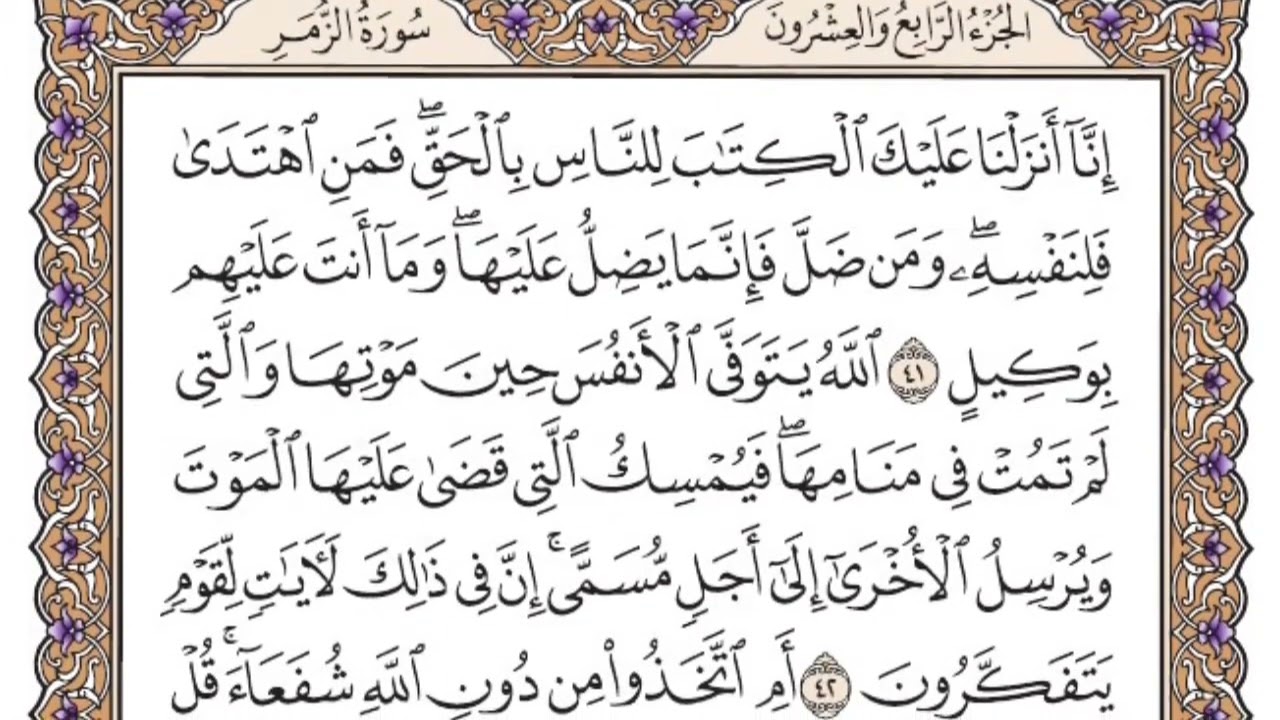 الجُزْءُ الرَّابِعُ وَالعِشْرُونَ سُورَةُ الزُّمَرِ
إِنَّآ أَنزَلْنَا عَلَيْكَ ٱلْكِتَٰبَ لِلنَّاسِ بِٱلْحَقِّۖ فَمَنِ ٱهْتَدَىٰ
فَلِنَفْسِهِۦۖ وَمَن ضَلَّ فَإِنَّمَا يَضِلُّ عَلَيْهَاۖ وَمَآ أَنتَ عَلَيْهِم
بِوَكِيلٍ ٤١ ٱللَّهُ يَتَوَفَّى ٱلْأَنفُسَ حِينَ مَوْتِهَا وَٱلَّتِى
لَمْ تَمُتْ فِى مَنَامِهَاۖ فَيُمْسِكُ ٱلَّتِى قَضَىٰ عَلَيْهَا ٱلْمَوْتَ
وَيُرْسِلُ ٱلْأُخْرَىٰٓ إِلَىٰٓ أَجَلٍ مُّسَمًّىۚ إِنَّ فِى ذَٰلِكَ لَءَايَٰتٍ لِّقَوْمٍ
يَتَفَكَّرُونَ ٤٢ أَمِ ٱتَّخَذُوا۟ مِن دُونِ ٱللَّهِ شُفَعَآءَۚ قُلْ